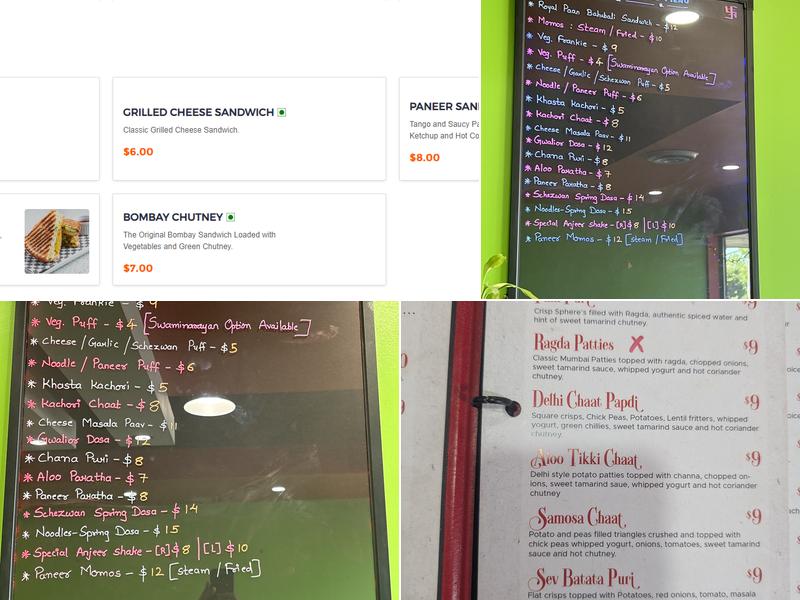 GRILLED CHEESE SANDWICH
Classic Grilled Cheese Sandwich.
$6.00
PANEER SAN
Tango and Saucy Pa
Ketchup and Hot Co
$8.00
BOMBAY CHUTNEY
The Original Bombay Sandwich Loaded with
Vegetables and Green Chutney.
$7.00
* Royal Paan Bahubali Sandwich - $12
* Momos : Steam / Fried - $10
* Veg. Frankie - $9
* Veg. Puff - $4 [Swaminarayan Option Available]
* Cheese/Garlic/Schezwan Puff - $5
* Noodle / Paneer Puff - $6
* Khasta Kachori - $5
* Kachori Chaat - $8
* Cheese Masala Paav - $11
* Gwalior Dosa - $12
* Chana Puri - $8
* Aloo Paratha - $7
* Paneer Paratha - $8
* Schezwan Spring Dosa - $14
* Noodles-Spring Dosa - $15
* Special Anjeer Shake - [R] $8 | [L] $10
* Paneer Momos - $12 [steam / Fried]
* Veg. Frankie - $9
* Veg. Puff - $4 [Swaminarayan Option Available]
* Cheese / Garlic / Schezwan Puff - $5
* Noodle / Paneer Puff - $6
* Khasta Kachori - $5
* Kachori Chaat - $8
* Cheese Masala Paav - $11
* Gwalior Dosa - $12
* Chana Puri - $8
* Aloo Paratha - $7
* Paneer Paratha - $8
* Schezwan Spring Dosa - $14
* Noodles-Spring Dosa - $15
* Special Anjeer Shake - [R] $8 | [L] $10
* Paneer Momos - $12 [steam / Fried]
Crisp Sphere's filled with Ragda, authentic spiced water and
hint of sweet tamarind chutney.
Ragda Patties X $9
Classic Mumbai Patties topped with ragda, chopped onions,
sweet tamarind sauce, whipped yogurt and hot coriander
chutney.
Delhi Chaat Papdi $9
Square crisps, Chick Peas, Potatoes, Lentil fritters, whipped
yogurt, green chillies, sweet tamarind sauce and hot coriander
chutney.
Aloo Tikki Chaat $9
Delhi style potato patties topped with channa, chopped on-
ions, sweet tamarind saue, whipped yogurt and hot coriander
chutney
Samosa Chaat $9
Potato and peas filled triangles crushed and topped with
chick peas whipped yogurt, onions, tomatoes, sweet tamarind
sauce and hot chutney.
Sev Batata Puri $9
Flat crisps topped with Potatoes, red onions, tomato, masala